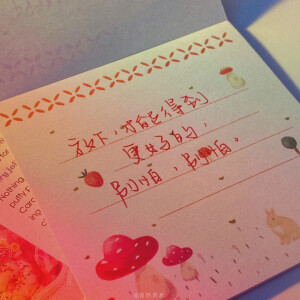 放下，才能得到
更好的，
别怕，别怕。
Nothing